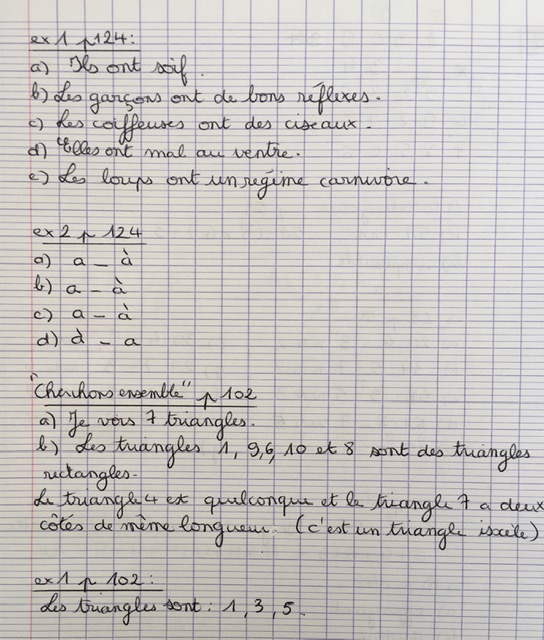 ex 1 p 124 :
a) Ils ont soif.
b) Les garçons ont de bons réflexes.
c) Les coiffeuses ont des ciseaux.
d) Elles ont mal au ventre.
e) Les loups ont un régime carnivore.
ex 2 p 124
a) a - à
b) a - à
c) a - à
d) à - a
"Cherchons ensemble" p 102
a) Je vois 7 triangles.
b) Les triangles 1, 9, 6, 10 et 8 sont des triangles
rectangles.
Le triangle 4 est quelconque et le triangle 7 a deux
côtés de même longueur. (c'est un triangle isocèle)
ex 1 p 102 :
Les triangles sont : 1, 3, 5.